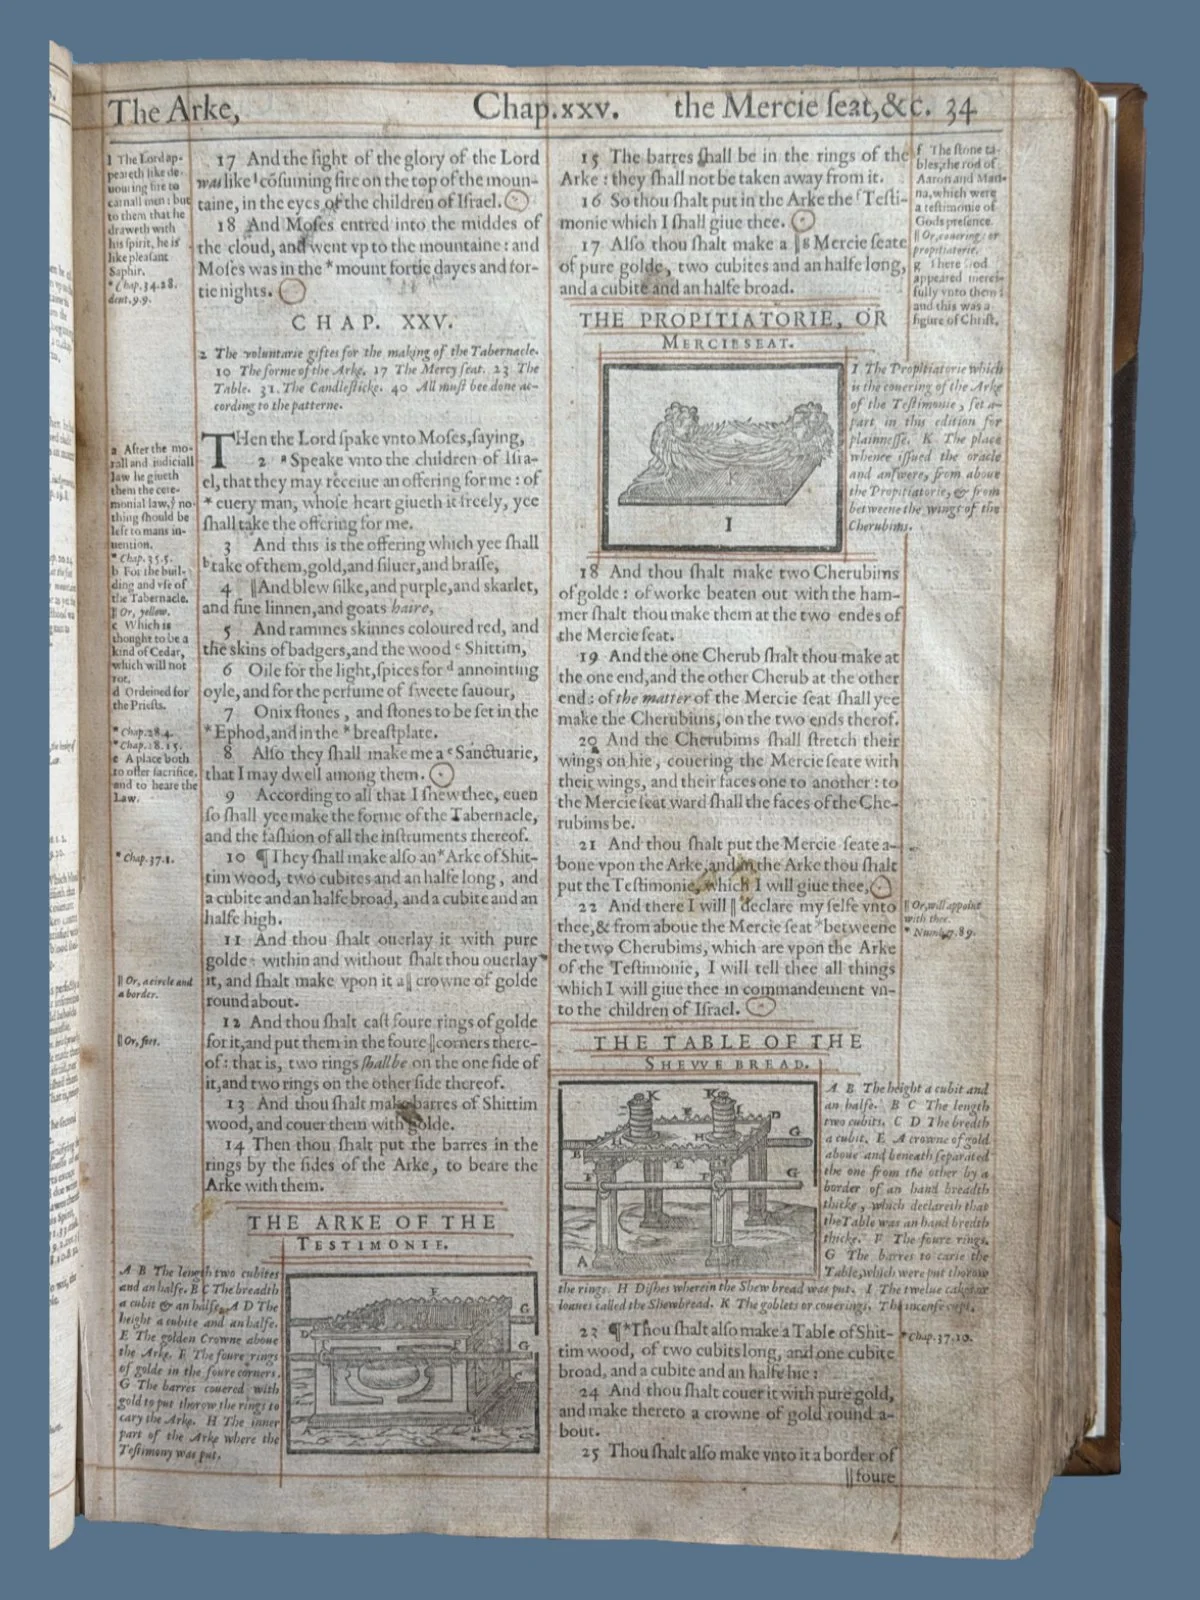 The Arke, Chap.xxv. the Mercie ſeat,&c. 34
l The Lord ap-
peareth like de-
uouring fire to
carnall men: but
to them that he
draweth with
his ſpirit, he is
like pleaſant
Saphir.
* Chap.34.28.
deut.9.9.
17 And the ſight of the glory of the Lord
was like l cōſuming fire on the top of the moun-
taine, in the eyes of the children of Iſrael.
18 And Moſes entred into the middes of
the cloud, and went vp to the mountaine: and
Moſes was in the * mount fortie dayes and for-
tie nights.
CHAP. XXV.
2 The voluntarie giftes for the making of the Tabernacle.
10 The forme of the Arke. 17 The Mercy ſeat. 23 The
Table. 31. The Candleſticke. 40 All muſt bee done ac-
cording to the patterne.
a After the mo-
rall and iudiciall
law he giueth
them the cere-
monial law, ẏ no-
thing ſhould be
left to mans in-
uention.
* Chap.35.5.
b For the buil-
ding and vſe of
the Tabernacle.
|| Or, yellow.
c Which is
thought to be a
kind of Cedar,
which will not
rot.
d Ordeined for
the Prieſts.
* Chap.28.4.
* Chap.28.15.
e A place both
to offer ſacrifice,
and to heare the
Law.
* Chap.37.1.
|| Or, a circle and
a border.
|| Or, feet.
THen the Lord ſpake vnto Moſes, ſaying,
2 a Speake vnto the children of Iſra-
el, that they may receiue an offering for me: of
* euery man, whoſe heart giueth it freely, yee
ſhall take the offering for me.
3 And this is the offering which yee ſhall
b take of them, gold, and ſiluer, and braſſe,
4 || And blew ſilke, and purple, and skarlet,
and fine linnen, and goats haire,
5 And rammes skinnes coloured red, and
the skins of badgers, and the wood c Shittim,
6 Oile for the light, ſpices for d annointing
oyle, and for the perfume of ſweete ſauour,
7 Onix ſtones, and ſtones to be ſet in the
* Ephod, and in the * breaſtplate.
8 Alſo they ſhall make me a e Sanctuarie,
that I may dwell among them.
9 According to all that I ſhew thee, euen
ſo ſhall yee make the forme of the Tabernacle,
and the faſhion of all the inſtruments thereof.
10 ¶ They ſhall make alſo an * Arke of Shit-
tim wood, two cubites and an halfe long, and
a cubite and an halfe broad, and a cubite and an
halfe high.
11 And thou ſhalt ouerlay it with pure
golde: within and without ſhalt thou ouerlay
it, and ſhalt make vpon it a || crowne of golde
round about.
12 And thou ſhalt caſt foure rings of golde
for it, and put them in the foure || corners there-
of: that is, two rings ſhalbe on the one ſide of
it, and two rings on the other ſide thereof.
13 And thou ſhalt make barres of Shittim
wood, and couer them with golde.
14 Then thou ſhalt put the barres in the
rings by the ſides of the Arke, to beare the
Arke with them.
THE ARKE OF THE
TESTIMONIE.
A B The length two cubites
and an halfe. B C The breadth
a cubit & an halfe. A D The
height a cubite and an halfe.
E The golden Crowne aboue
the Arke. F The foure rings
of golde in the foure corners.
G The barres couered with
gold to put thorow the rings to
cary the Arke. H The inner
part of the Arke where the
Teſtimony was put.
E
G
D
G
C
A
B
15 The barres ſhall be in the rings of the
Arke: they ſhall not be taken away from it.
16 So thou ſhalt put in the Arke the f Teſti-
monie which I ſhall giue thee.
17 Alſo thou ſhalt make a || g Mercie ſeate
of pure golde, two cubites and an halfe long,
and a cubite and an halfe broad.
f The ſtone ta-
bles, the rod of
Aaron and Man-
na, which were
a teſtimonie of
Gods preſence.
|| Or, couering: or
propitiatorie.
g There God
appeared merci-
fully vnto them:
and this was a
figure of Chriſt.
THE PROPITIATORIE, OR
MERCIESEAT.
K
I
I The Propitiatorie which
is the couering of the Arke
of the Teſtimonie, ſet a-
part in this edition for
plainneſſe. K The place
whence iſſued the oracle
and anſwere, from aboue
the Propitiatorie, & from
betweene the wings of the
Cherubims.
18 And thou ſhalt make two Cherubims
of golde: of worke beaten out with the ham-
mer ſhalt thou make them at the two endes of
the Mercie ſeat.
19 And the one Cherub ſhalt thou make at
the one end, and the other Cherub at the other
end: of the matter of the Mercie ſeat ſhall yee
make the Cherubims, on the two ends therof.
20 And the Cherubims ſhall ſtretch their
wings on hie, couering the Mercie ſeate with
their wings, and their faces one to another: to
the Mercie ſeat ward ſhall the faces of the Che-
rubims be.
21 And thou ſhalt put the Mercie ſeate a-
boue vpon the Arke, and in the Arke thou ſhalt
put the Teſtimonie, which I will giue thee,
22 And there I will || declare my ſelfe vnto
thee, & from aboue the Mercie ſeat * betweene
the two Cherubims, which are vpon the Arke
of the Teſtimonie, I will tell thee all things
which I will giue thee in commandement vn-
to the children of Iſrael.
|| Or, will appoint
with thee.
* Numb.7.89.
THE TABLE OF THE
SHEWE BREAD.
K K
I
D
E
H
G
B
E
F
G
A
A B The height a cubit and
an halfe. B C The length
two cubits. C D The bredth
a cubit. E A crowne of gold
aboue and beneath ſeparated
the one from the other by a
border of an hand breadth
thicke, which declareth that
the Table was an hand bredth
thicke. F The foure rings.
G The barres to carie the
Table, which were put thorow
the rings. H Diſhes wherein the Shew bread was put. I The twelue cakes or
loaues called the Shewbread. K The goblets or couerings. The incenſe cups.
23 ¶ * Thou ſhalt alſo make a Table of Shit-
tim wood, of two cubits long, and one cubite
broad, and a cubite and an halfe hie:
24 And thou ſhalt couer it with pure gold,
and make thereto a crowne of gold round a-
bout.
25 Thou ſhalt alſo make vnto it a border of
|| foure
* Chap.37.10.